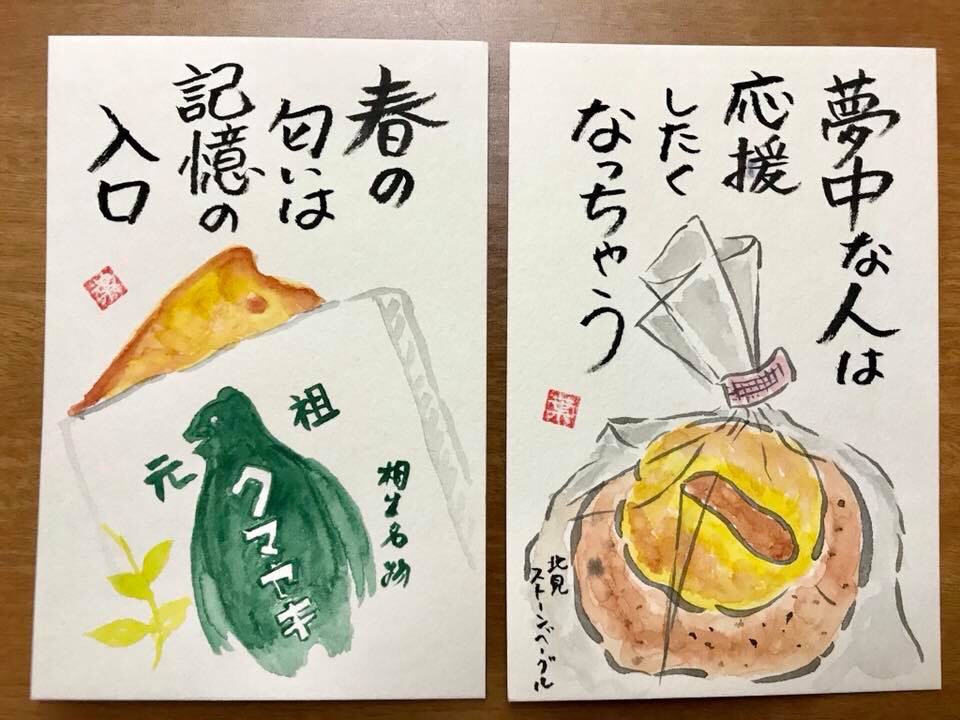 春の
匂いは
記憶の
入口
葉
元祖
クマヤキ
相生名物
夢中な人は
応援
したく
なっちゃう
葉
北見
ストーンベーグル